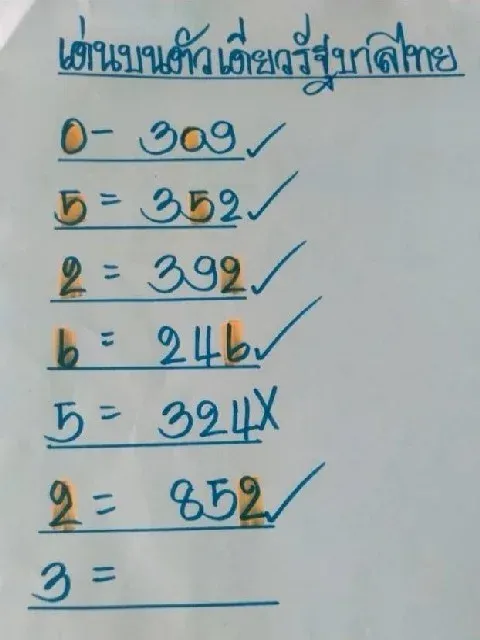 เด่นบนตัวเดียวรัฐบาลไทย
0- 309 ✓
5 = 352 ✓
2 = 392 ✓
6 = 246 ✓
5 = 324 X
2 = 852 ✓
3 =